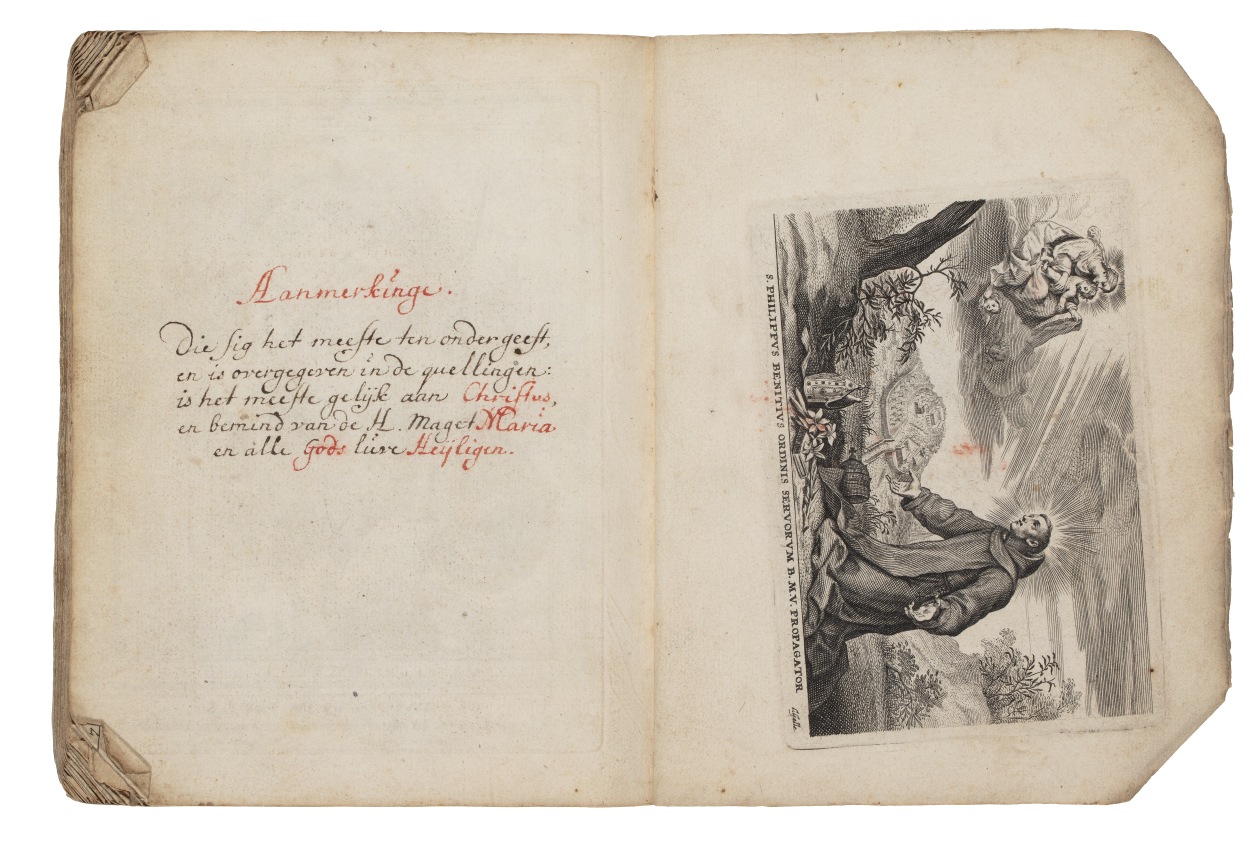 Aanmerkinge.
Die sig het meeste ten onder geeft,
en is overgegeven in de quellingen:
is het meeste gelijk aan Christus,
en bemind van de H. Maget Maria
en alle Gods lieve Heyligen.
S. PHILIPPVS BENITIVS ORDINIS SERVORVM B.M.V. PROPAGATOR